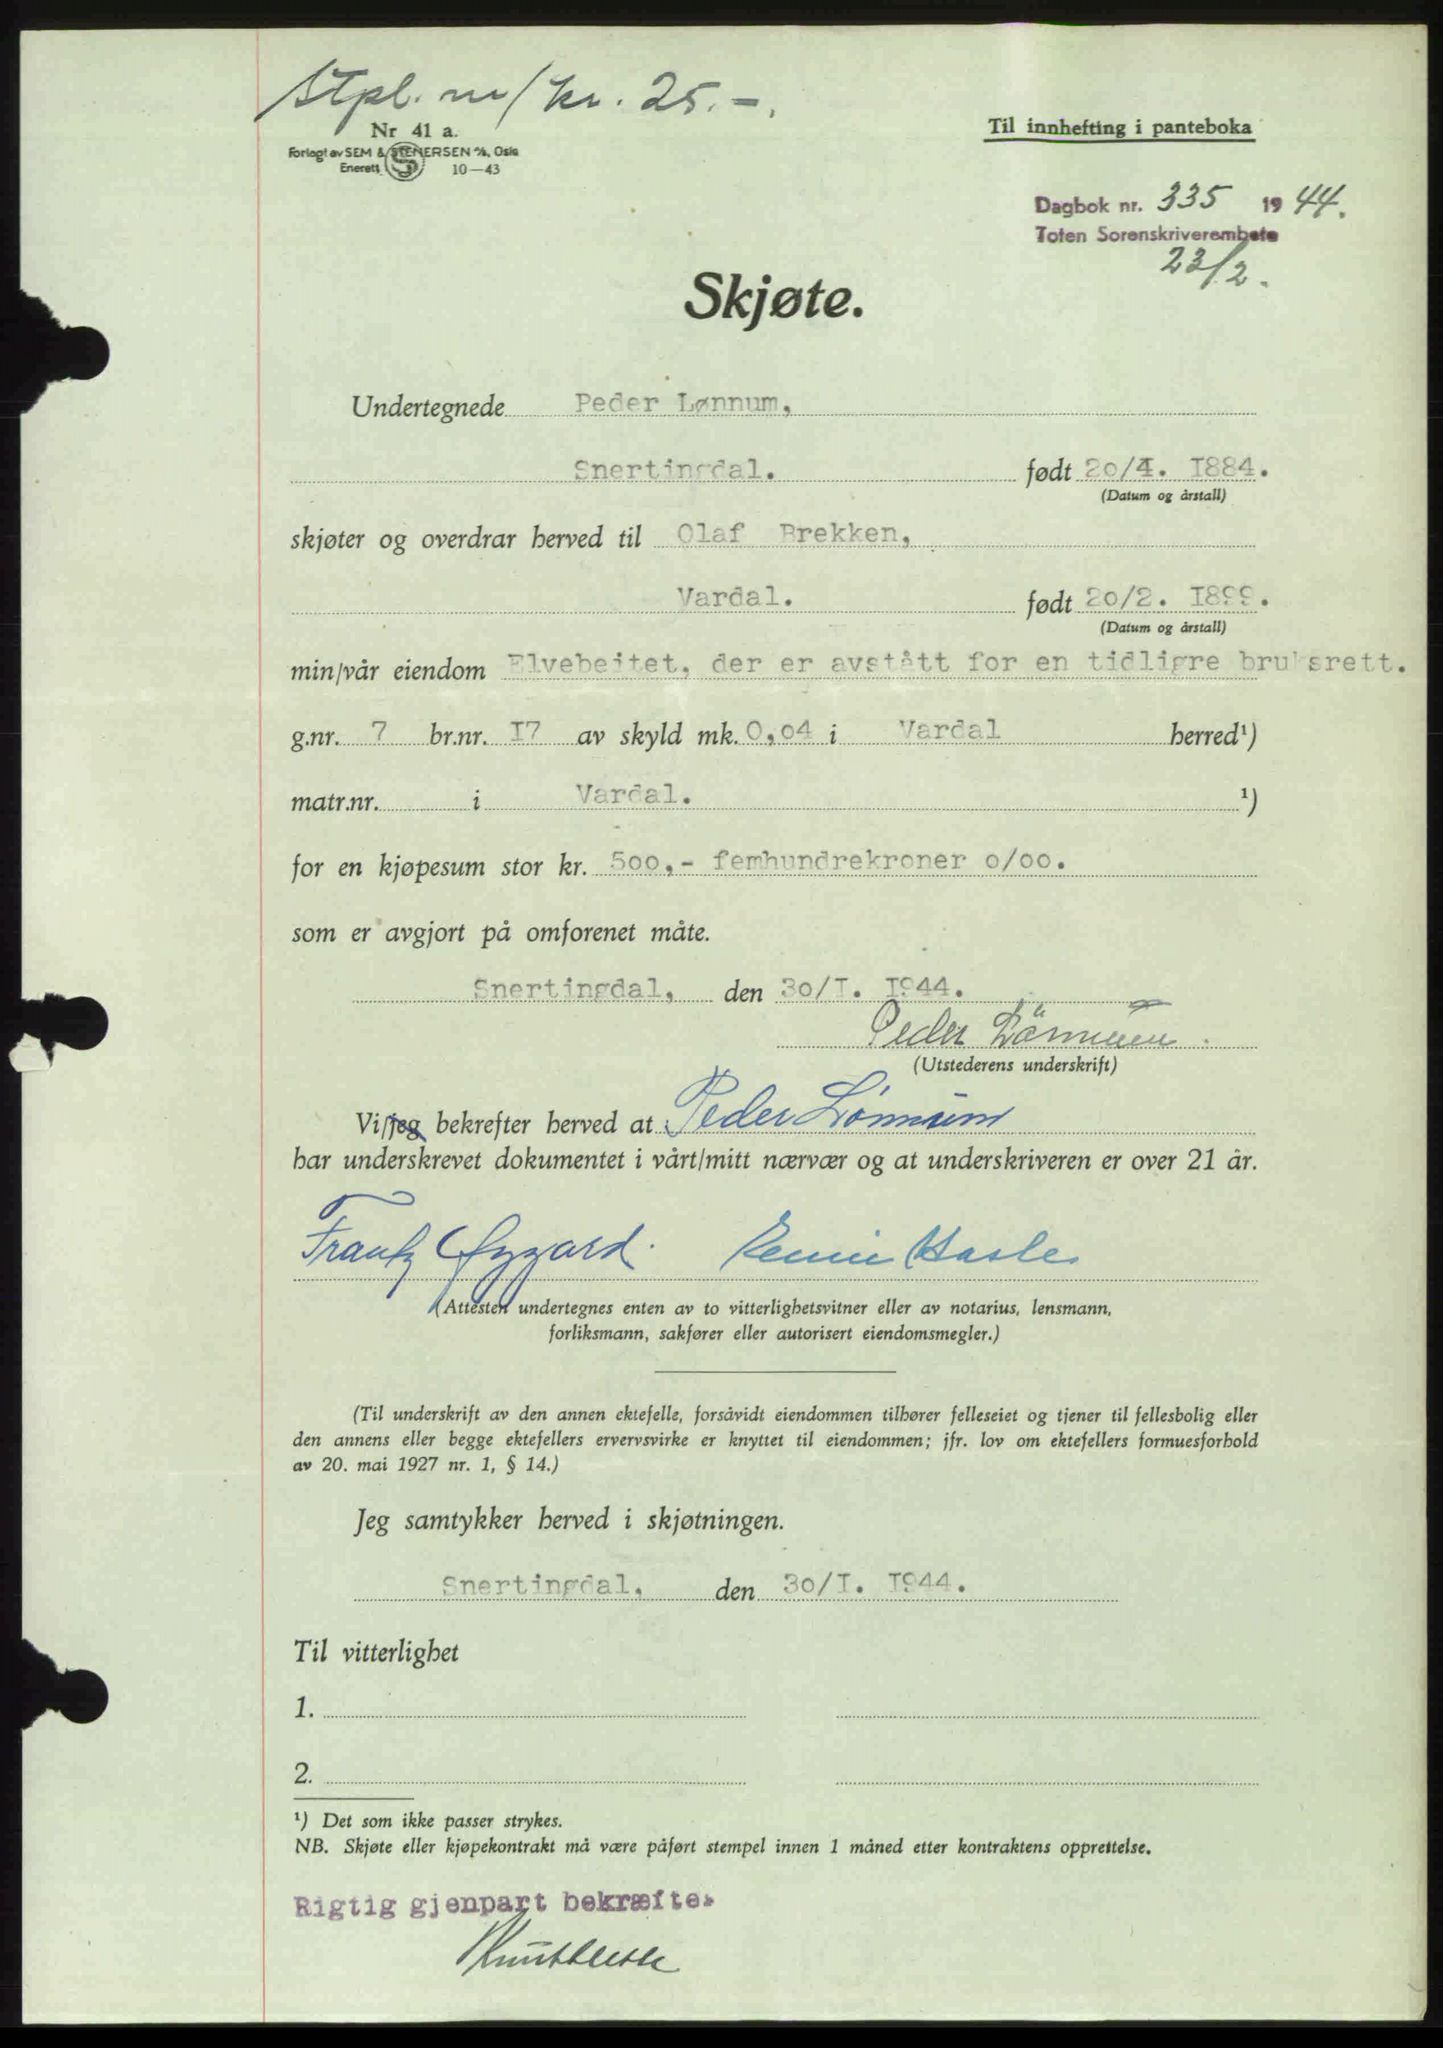 Stpl. m/ kr. 25.-.
Nr 41 a.
Forlagt av SEM & STENERSEN A/S, Oslo
Enerett 10—43
Til innhefting i panteboka
Dagbok nr. 335 1944.
Toten Sorenskriverembete
23/2.
Skjøte.
Undertegnede Peder Lønnum,
Snertingdal. født 20/4. I884.
(Datum og årstall)
skjøter og overdrar herved til Olaf Brekken,
Vardal. født 20/2. I899.
(Datum og årstall)
min/vår eiendom Elvebeitet, der er avstått for en tidligre bruksrett.
g.nr. 7 br.nr. I7 av skyld mk. 0,04 i Vardal herred¹)
matr.nr. i Vardal. ¹)
for en kjøpesum stor kr. 500,- femhundrekroner 0/00.
som er avgjort på omforenet måte.
Snertingdal, den 30/I. I944.
Peder Lönnum.
(Utstederens underskrift)
Vi/jeg bekrefter herved at Peder Lönnum
har underskrevet dokumentet i vårt/mitt nærvær og at underskriveren er over 21 år.
Frantz Hasle
(Attesten undertegnes enten av to vitterlighetsvitner eller av notarius, lensmann,
forliksmann, sakfører eller autorisert eiendomsmegler.)
(Til underskrift av den annen ektefelle, forsåvidt eiendommen tilhører felleseiet og tjener til fellesbolig eller
den annens eller begge ektefellers ervervsvirke er knyttet til eiendommen; jfr. lov om ektefellers formuesforhold
av 20. mai 1927 nr. 1, § 14.)
Jeg samtykker herved i skjøtningen.
Snertingdal, den 30/I. I944.
Til vitterlighet
1.
2.
¹) Det som ikke passer strykes.
NB. Skjøte eller kjøpekontrakt må være påført stempel innen 1 måned etter kontraktens opprettelse.
Rigtig gjenpart bekræftes